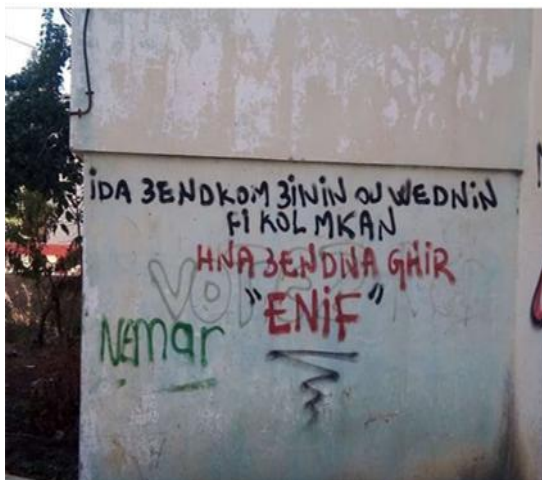 iDA 3ENDKOM 3iNiN OU WEDNiN
Fi KOL MKAN
HNA 3ENDNA GHiR
"ENiF"
NEMar